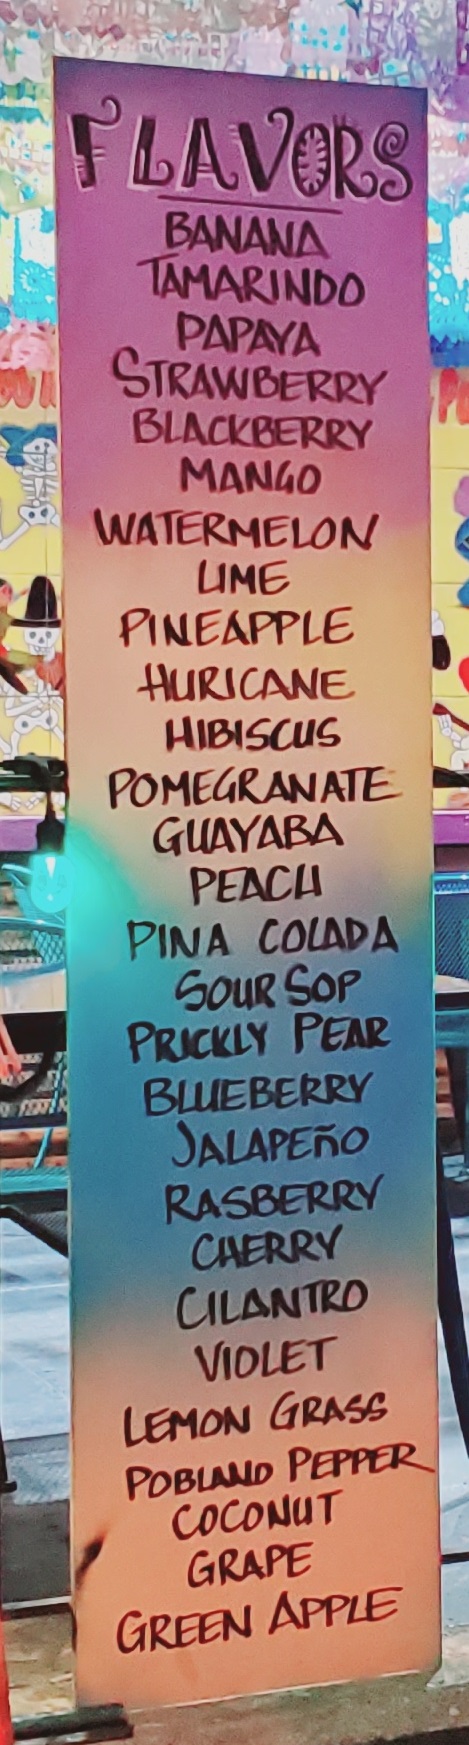 FLAVORS
BANANA
TAMARINDO
PAPAYA
STRAWBERRY
BLACKBERRY
MANGO
WATERMELON
LIME
PINEAPPLE
HURICANE
HIBISCUS
POMEGRANATE
GUAYABA
PEACH
PINA COLADA
SOUR SOP
PRICKLY PEAR
BLUEBERRY
JALAPEÑO
RASBERRY
CHERRY
CILANTRO
VIOLET
LEMON GRASS
POBLANO PEPPER
COCONUT
GRAPE
GREEN APPLE